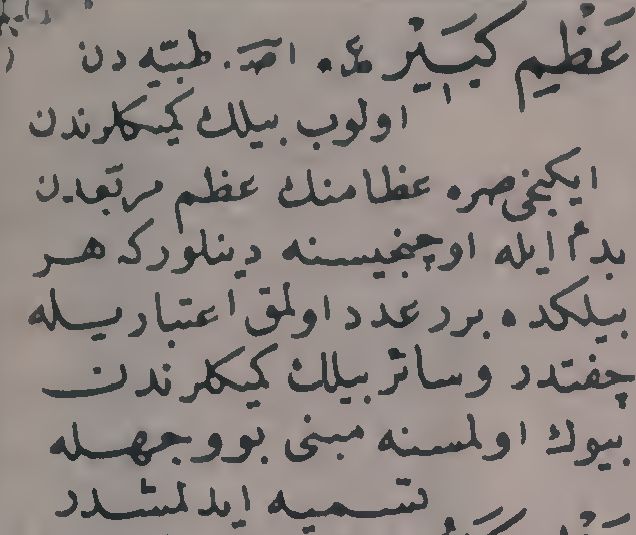 عَظْمِ كَبِيرْ ع. اصـ. طبيّه دن
اولوب بيلك كميكلرندن
ايكنجى صره عظامنك عظم مربّعدن
بدأ ايله اوچنجيسنه دينلوركه هر
بيلكده برر عدد اولمق اعتباريله
چفتدر وسائر بيلك كميكلرندن
بيوك اولمسنه مبنى بووجهله
تسميه ايدلمشدر